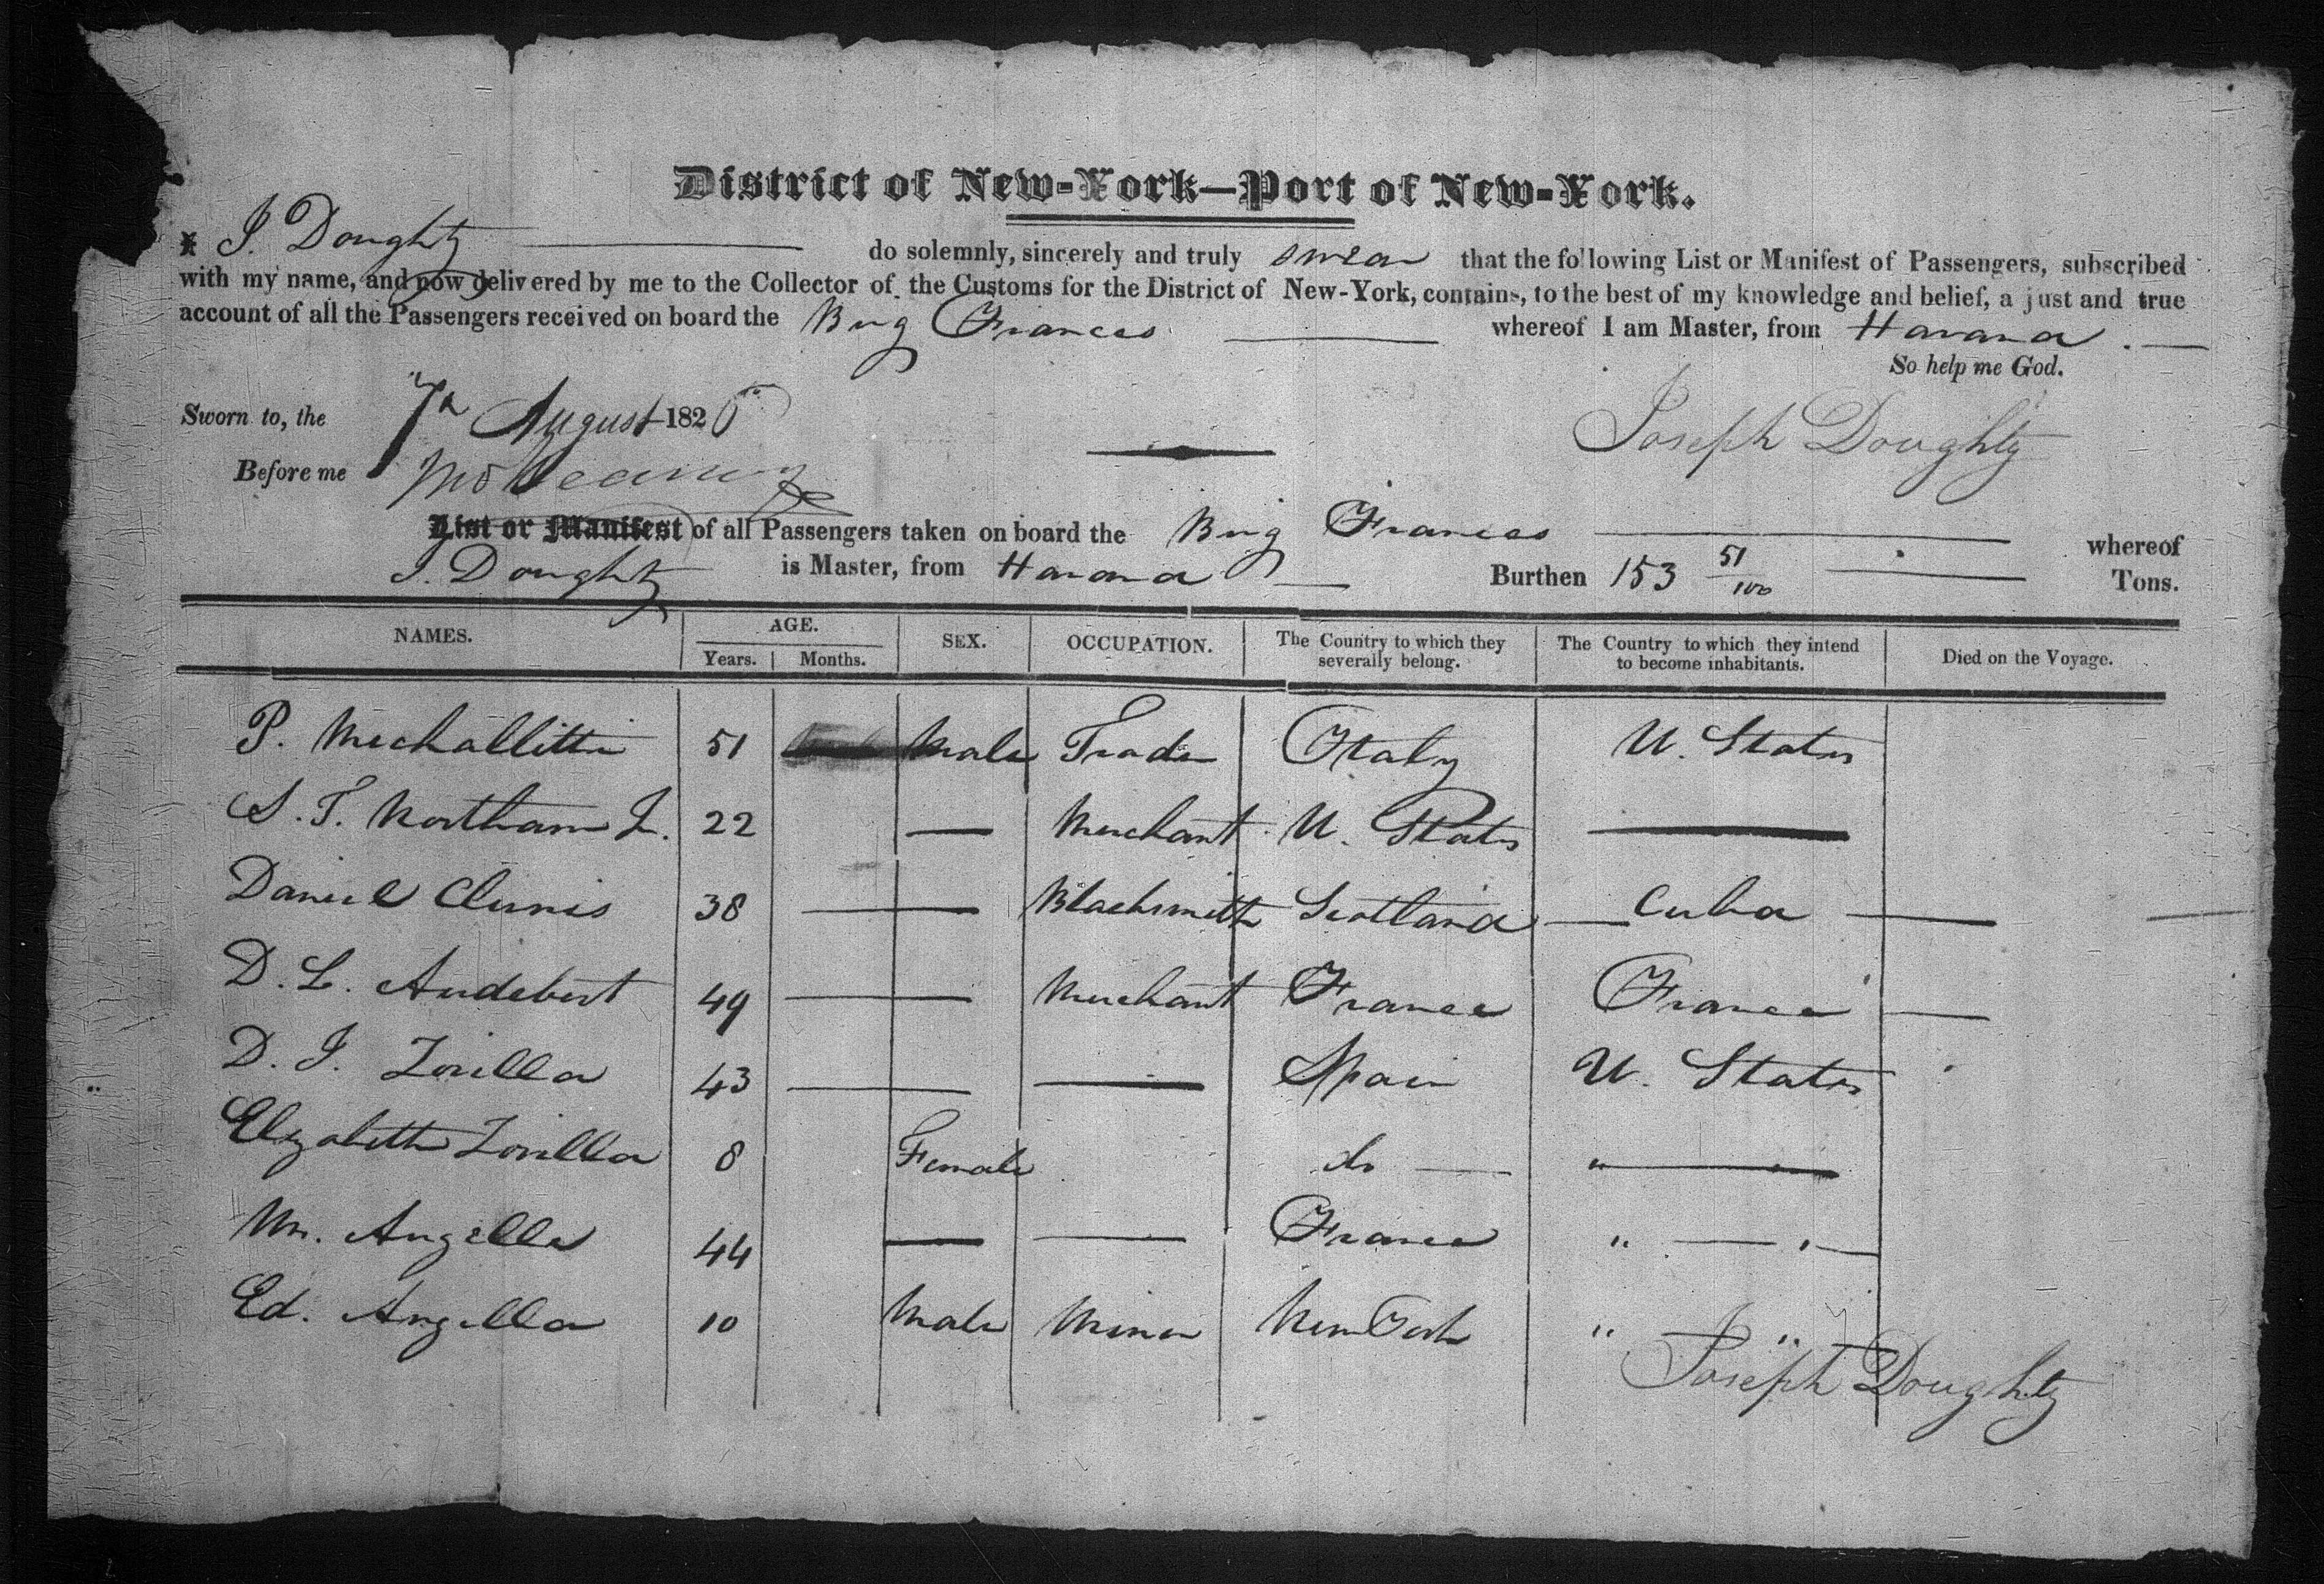 District of New-York—Port of New-York.
I, J. Doughty do solemnly, sincerely and truly swear that the following List or Manifest of Passengers, subscribed
with my name, and now delivered by me to the Collector of the Customs for the District of New-York, contains, to the best of my knowledge and belief, a just and true
account of all the Passengers received on board the Brig Frances whereof I am Master, from Havana.
So help me God.
Sworn to, the 7th August 1826 Joseph Doughty
Before me
List or Manifest of all Passengers taken on board the Brig Frances whereof
J. Doughty is Master, from Havana Burthen 153 51/100 Tons.
NAMES. AGE. SEX. OCCUPATION. The Country to which they severally belong. The Country to which they intend to become inhabitants. Died on the Voyage.
Years. Months.
P. Mechallitti 51 Male Trader Italy U. States
S. T. Northam Jr. 22 — Merchant U. States —
Daniel Clunis 38 — — Blacksmith Scotland — Cuba —
D. L. Audebert 49 — — Merchant France France —
D. J. Zorilla 43 — — Spain U. States
Elizabeth Zorilla 8 Female do — " —
Angella 44 — — France " — " —
Ed. Angella 10 Male Minor New York " — "
Joseph Doughty